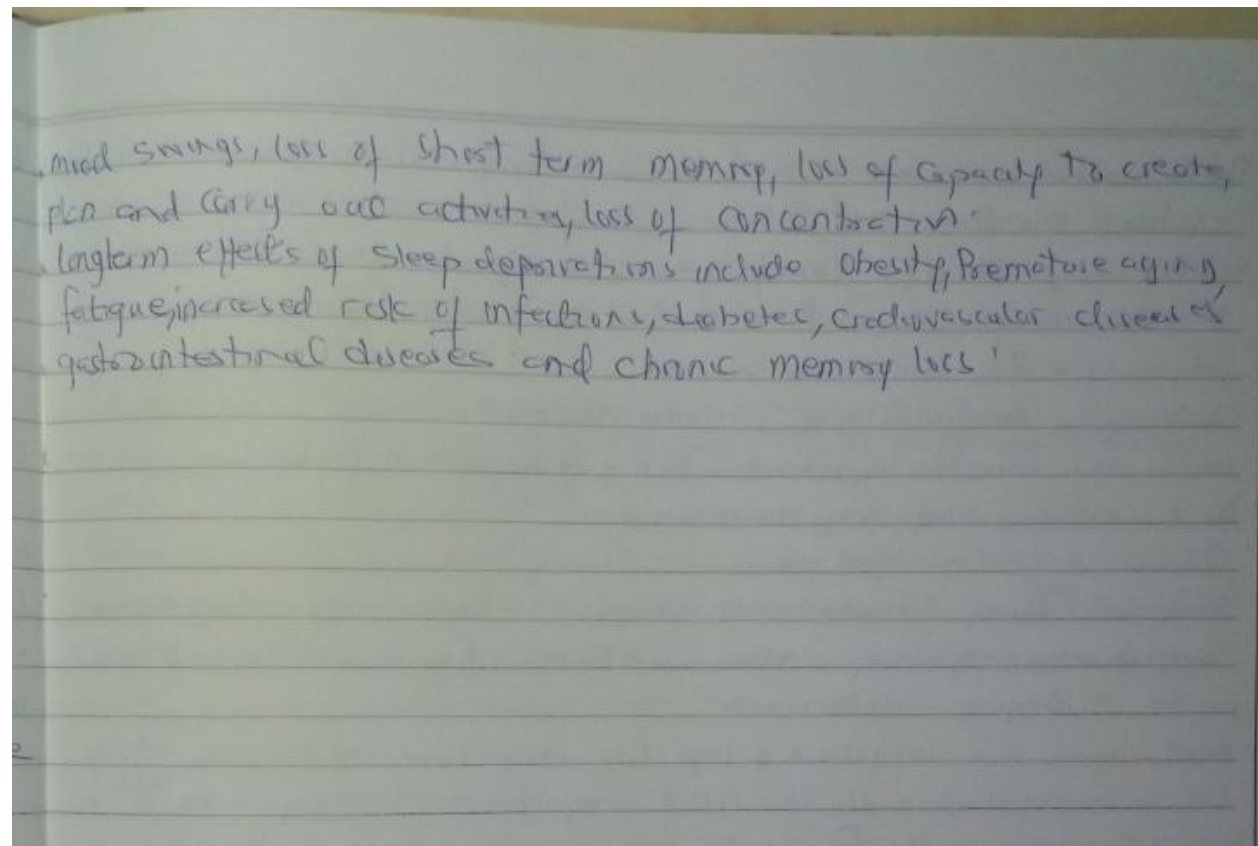 mood swings, loss of short term memory, loss of capacity to create,
plan and carry out activities, loss of concentration.
longterm effects of sleep deprivations include Obesity, Premature aging,
fatigue, increased risk of infections, diabetes, cradiovascular diseases
gastrointestinal diseases and chronic memory loss